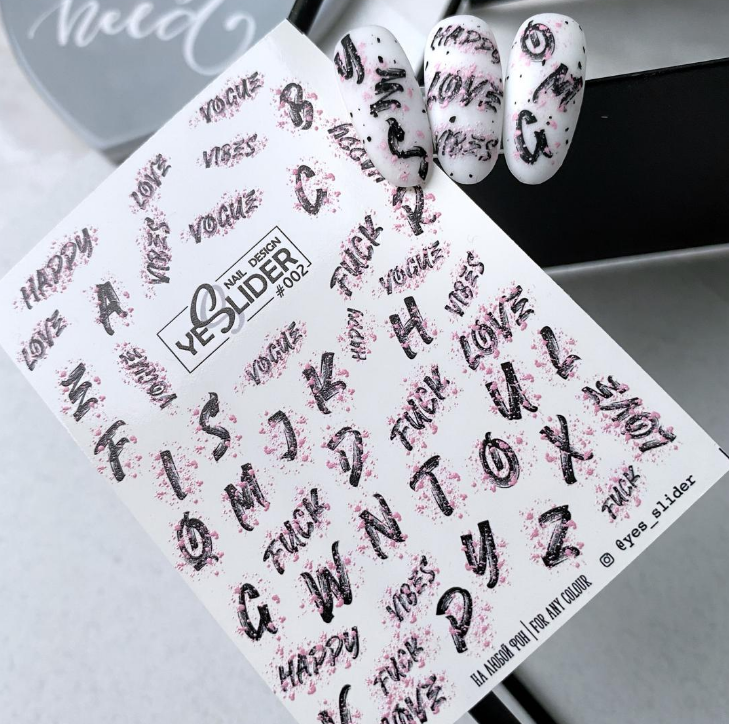 need
HAPPY
LOVE
VIBES
O
M
G
Y
M
S
VOGUE
B
HAPPY
LOVE
VIBES
C
R
HAPPY
VIBES
VOGUE
FUCK
VOGUE
VIBES
LOVE
A
YES SLIDER
NAIL DESIGN
#002
HAPPY
H
LOVE
M
VOGUE
VOGUE
K
U
L
LOVE
F
I
S
J
D
FUCK
T
O
X
FUCK
Q
M
FUCK
N
Y
Z
G
W
VIBES
P
HAPPY
FUCK
LOVE
@yes_slider
НА ЛЮБОЙ ФОН | FOR ANY COLOUR